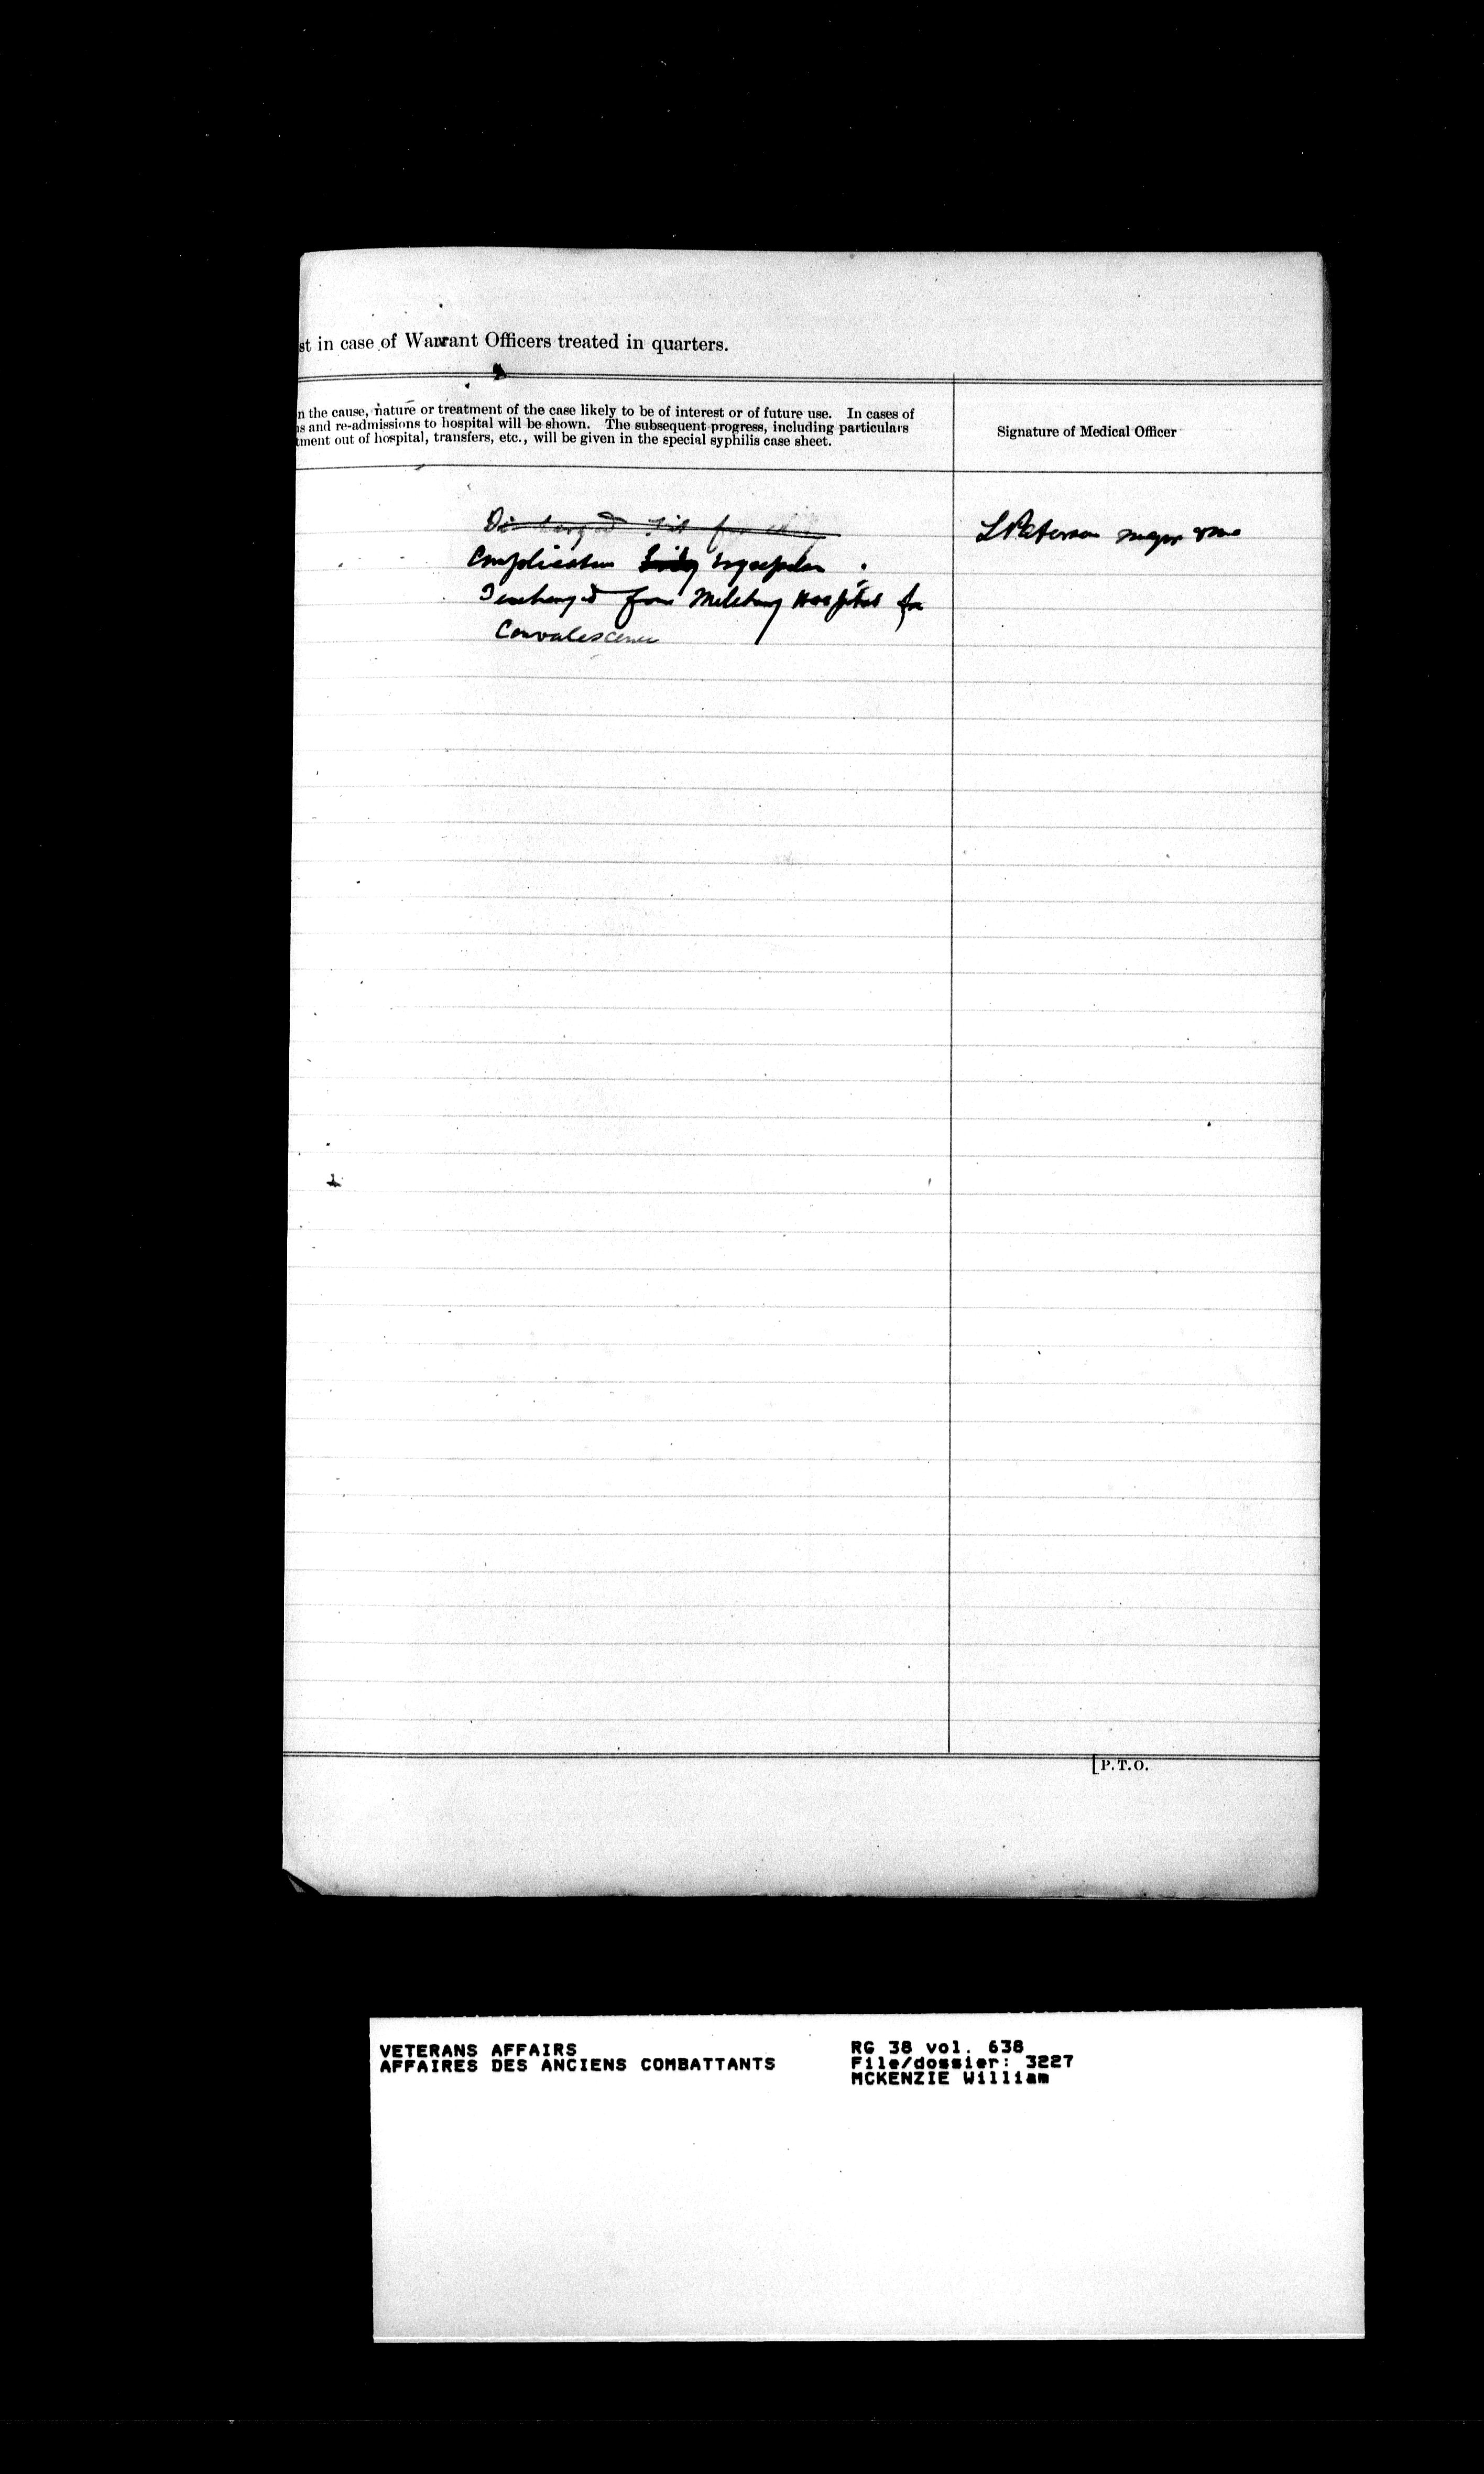 st in case of Warrant Officers treated in quarters.
n the cause, nature or treatment of the case likely to be of interest or of future use. In cases of
ns and re-admissions to hospital will be shown. The subsequent progress, including particulars
tment out of hospital, transfers, etc., will be given in the special syphilis case sheet.
Signature of Medical Officer
Discharged fit for
L Paterson Major
Complication
Discharged from Military Hospital for
Convalescence
[P.T.O.
VETERANS AFFAIRS
AFFAIRES DES ANCIENS COMBATTANTS
RG 38 vol. 638
File/dossier: 3227
MCKENZIE William